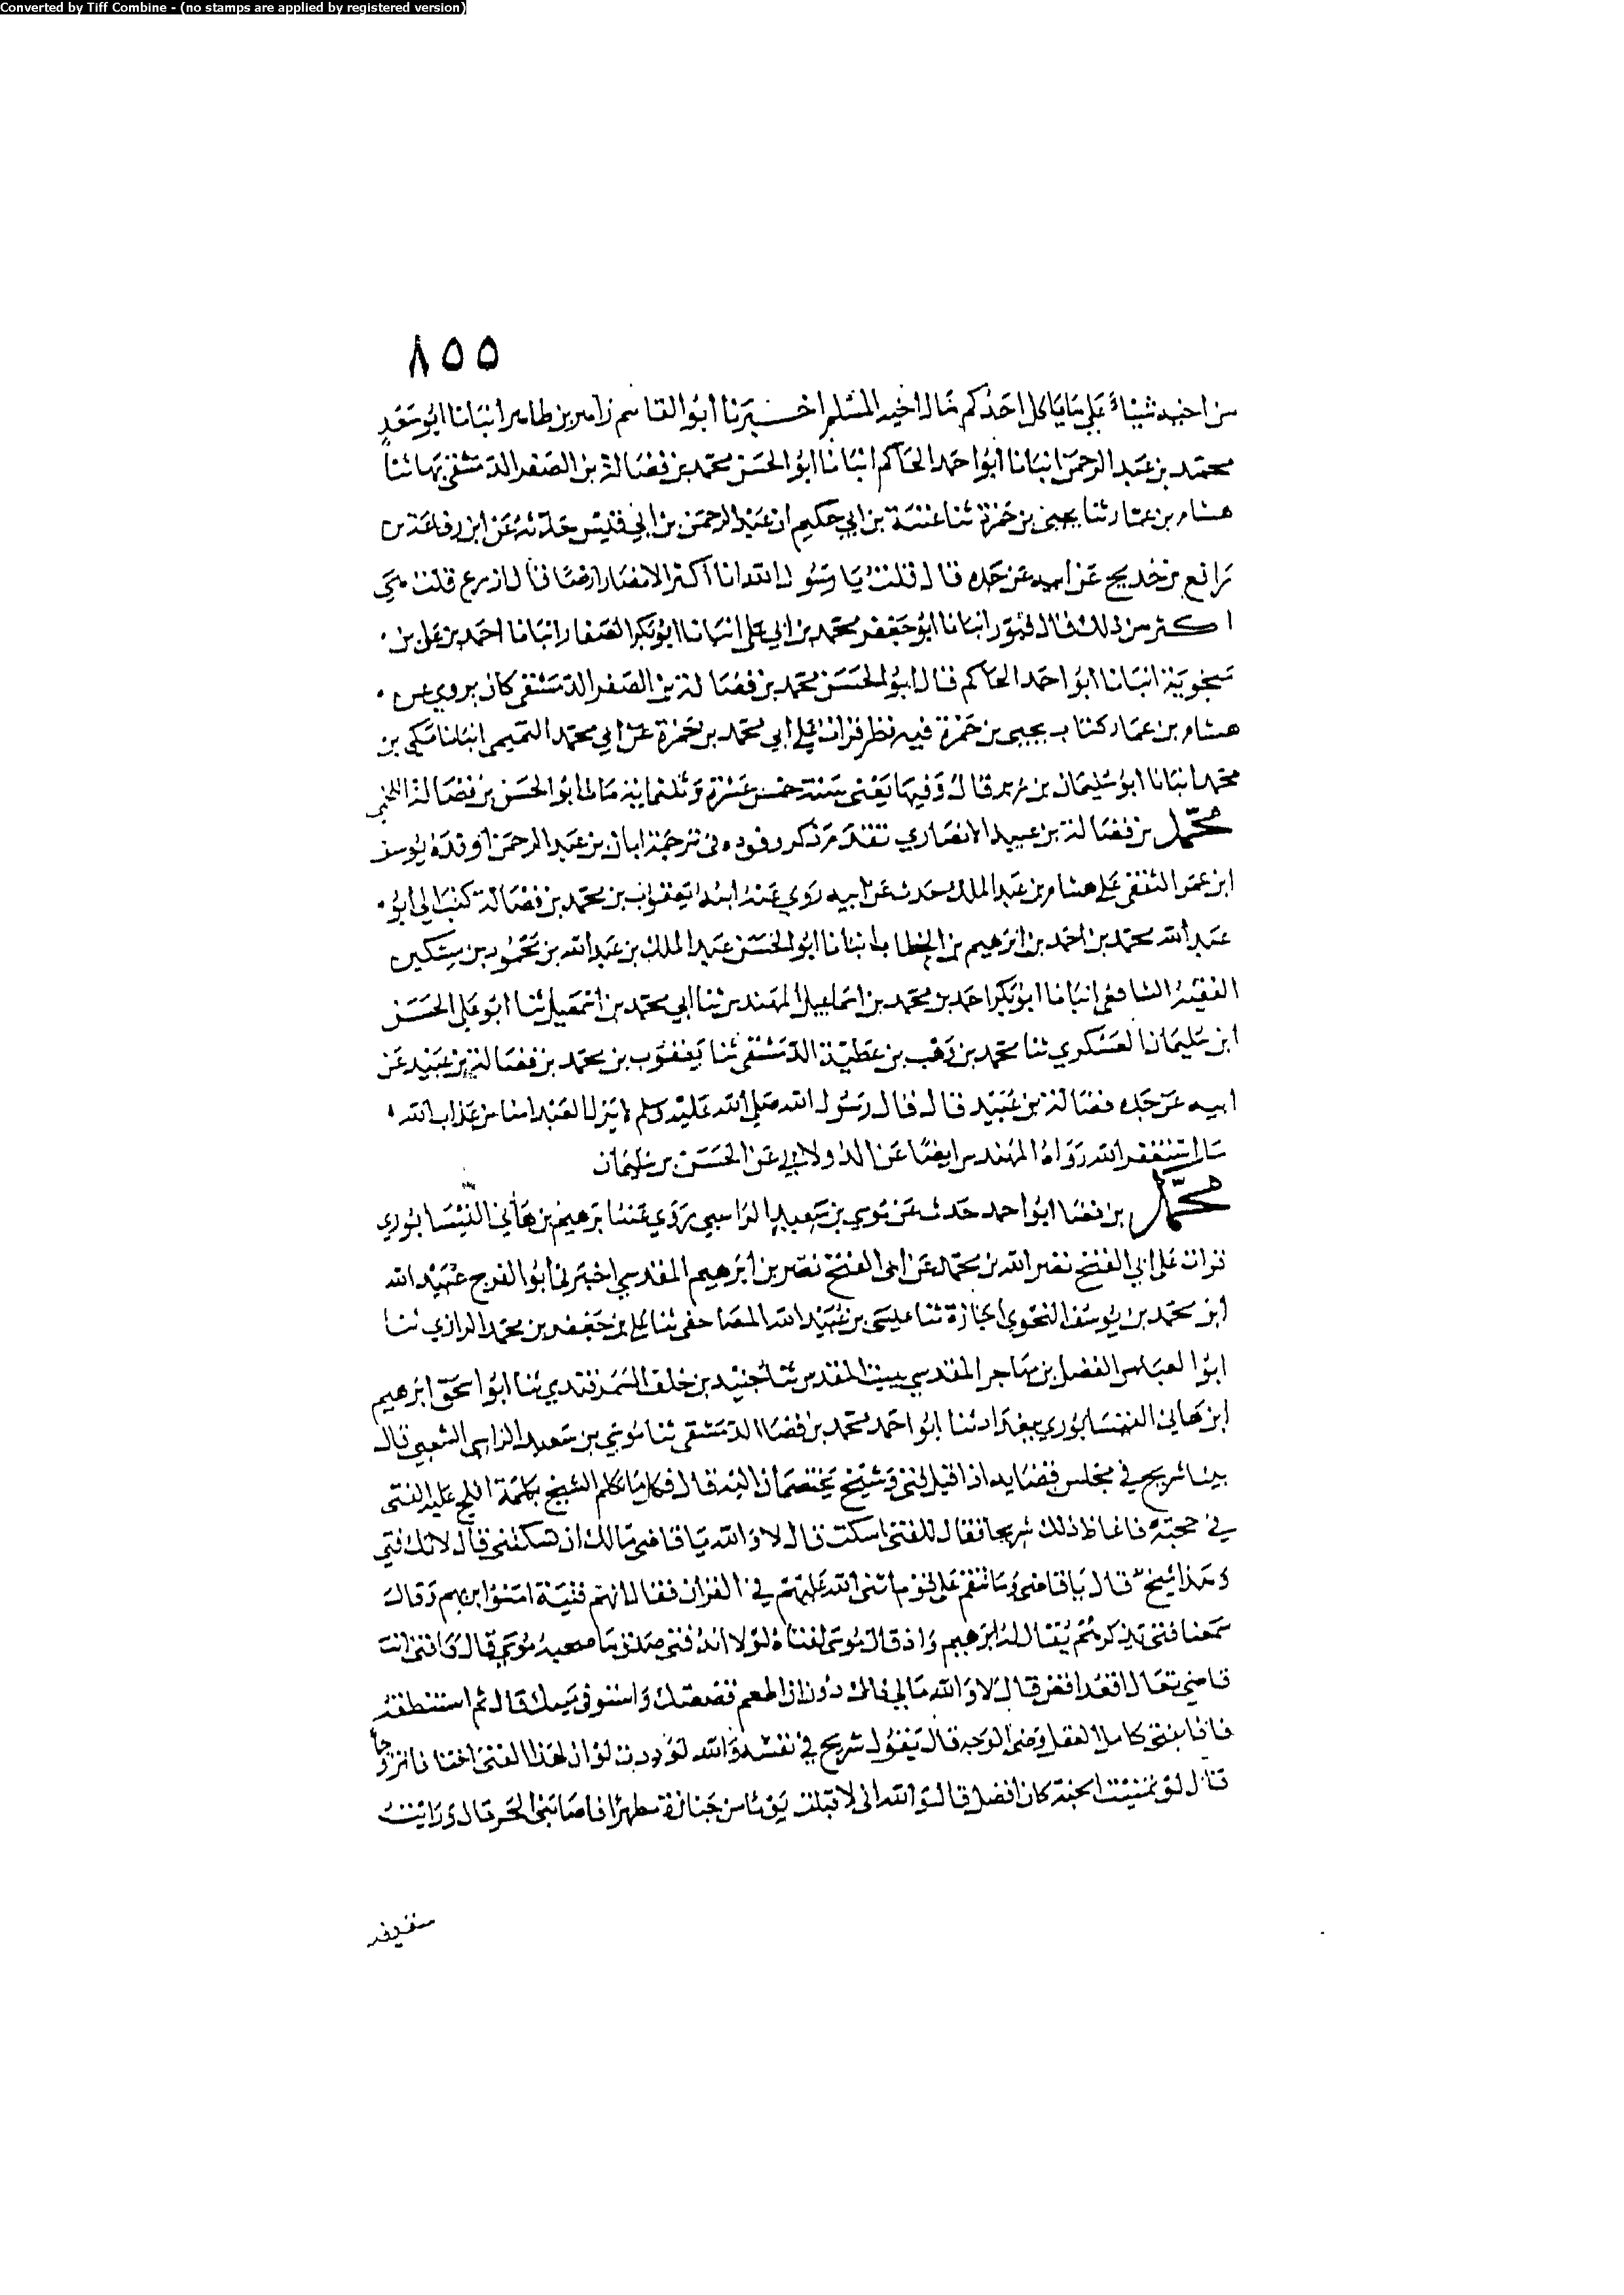 Converted by Tiff Combine - (no stamps are applied by registered version)
٨٥٥
من اخيه شيئا علي ما ياكل احدكم مال اخيه المسلم اخبرنا ابو القاسم زاهر بن طاهر انبانا ابو سعد
محمد بن عبد الرحمن انبانا ابو احمد الحاكم انبانا ابو الحسن محمد بن فضالة بن الصقر الدمشقي بها ثنا
هشام بن عمار ثنا يحيى بن حمزة ثنا عتبة بن ابي حكيم ان عبد الرحمن بن ابي قيس حدثه عن ابن رفاعة بن
رافع بن خديج عن ابيه عن جده قال قلت يا رسول الله انا اكثر الانصار ارضا قال ازرع قلت هي
اكثر من ذلك قال فبور انبانا ابو جعفر محمد بن ابي علي انبانا ابو بكر الصفار انبانا احمد بن علي بن
منجويه انبانا ابو احمد الحاكم قال ابو الحسن محمد بن فضالة بن الصقر الدمشقي كان يروي عن
هشام بن عمار كتاب يحيى بن حمزة فيه نظر قرات علي ابي محمد بن حمزة عن ابي محمد التميمي انبانا مكي بن
محمد انبانا ابو سليمان بن زبر قال وفيها يعني سنة خمس عشرة وثلثماية مات ابو الحسن بن فضالة اللخمي
محمد بن فضالة بن عبيد الانصاري تقدم ذكر وفوده في ترجمة ابان بن عبد الرحمن اوفده يوسف
ابن عمر الثقفي علي هشام بن عبد الملك حدث عن ابيه روي عنه ابنه يعقوب بن محمد بن فضالة كتب الي ابو
عبد الله محمد بن احمد بن ابرهيم بن الخطاب انبانا ابو الحسن عبد الملك بن عبد الله بن محمود بن مسكين
الفقيه الشافعي انبانا ابو بكر احمد بن محمد بن اسماعيل المهندس ثنا ابي محمد بن اسمعيل ثنا ابو علي الحسن
ابن سليمان العسكري ثنا محمد بن وهب بن عطية الدمشقي ثنا يعقوب بن محمد بن فضالة بن عبيد عن
ابيه عن جده فضالة بن عبيد قال قال رسول الله صلي الله عليه وسلم لا يزال العبد امنا من عذاب الله
ما استغفر الله رواه المهندس ايضا عن الدولابي عن الحسن بن سليمان
محمد بن فضا ابو احمد حدث عن موسي بن سعيد الراسبي روي عنه ابرهيم بن هاني النيسابوري
قرات علي ابي الفتح نصر الله بن محمد عن ابي الفتح نصر بن ابرهيم المقدسي اخبرني ابو الفرج عبيد الله
ابن محمد بن يوسف النحوي اجازة ثنا عيسي بن عبيد الله المصاحفي ثنا علي بن جعفر بن محمد الرازي ثنا
ابو العباس الفضل بن مهاجر المقدسي ببيت المقدس ثنا جنيد بن خلف السمرقندي ثنا ابو اسحق ابرهيم
ابن هاني النيسابوري ببغداد ثنا ابو احمد محمد بن فضا الدمشقي ثنا موسي بن سعيد الراسبي الشعبي قال
بينا شريح في مجلس قضايه اذ اقبل فتى وشيخ يختصمان اليه قال فكل ما تكلم الشيخ بكلمة افلج عليه الفتى
في حجته فاغاظ ذلك شريحا فقال للفتى اسكت قال لا والله يا قاضي مالك ان تسكتني قال لانك فتي
وهذا شيخ قال يا قاضي وما تنقم علي قوم اثنى الله عليهم في القران فقال انهم فتية امنوا بربهم وقال
سمعنا فتى يذكرهم يقال له ابرهيم واذ قال موسى لفتاه لولا انه فتى صدق ما صحبه موسي قال وانتي انت
قاضي تعال اقعد اقض قال لا والله مالي ذلك دون ان المعم قصعتك واستوفى قال ثم استنطقه
فاذا بفتى كامل العقل وضي الوجه قال يقول شريح في نفسه والله لوددت لو ان لهذا الفتى اختا فاتزوجها
قال لو تمنيت الجنة كان افضل قال والله اني لاقبلت يوما من جنازة مظهرا فاصابني الحر قال ورايت
سقيفة